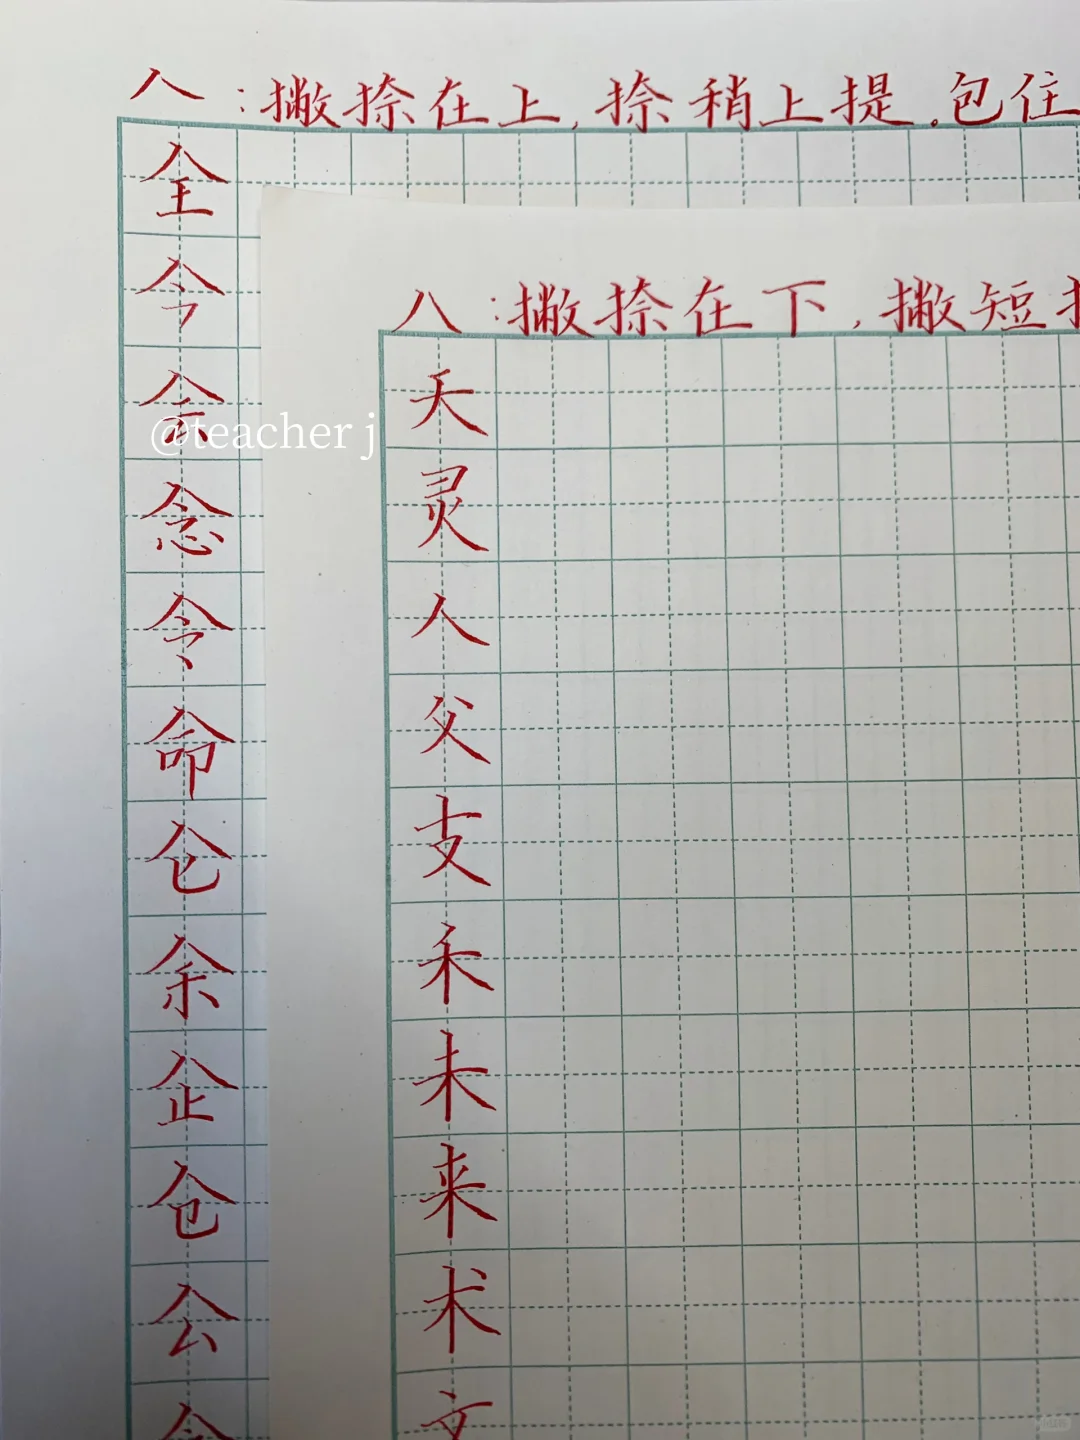 八：撇捺在上，捺稍上提。包住
全
今
会
念
令
命
仑
余
企
仓
公
八：撇捺在下，撇短
天
灵
人
父
支
禾
未
来
术
文
@teacher j